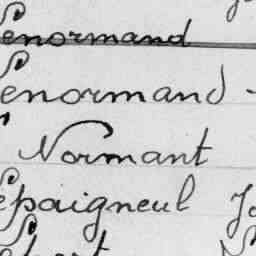 Lenormand
Lenormand -
Normant
Lepaigneul